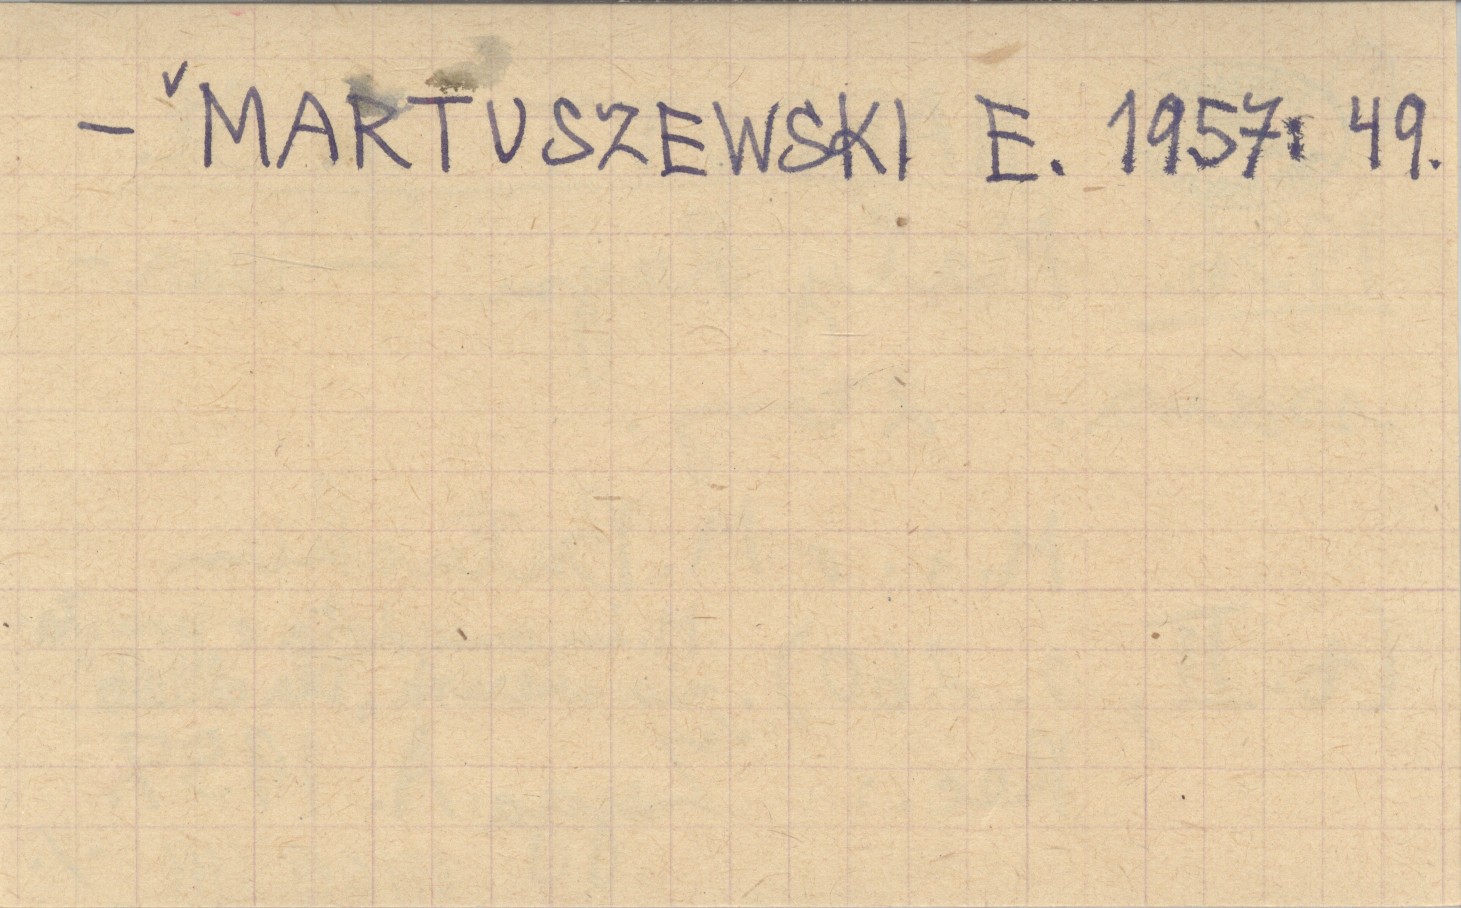 – ᵛMARTUSZEWSKI E. 1957: 49.